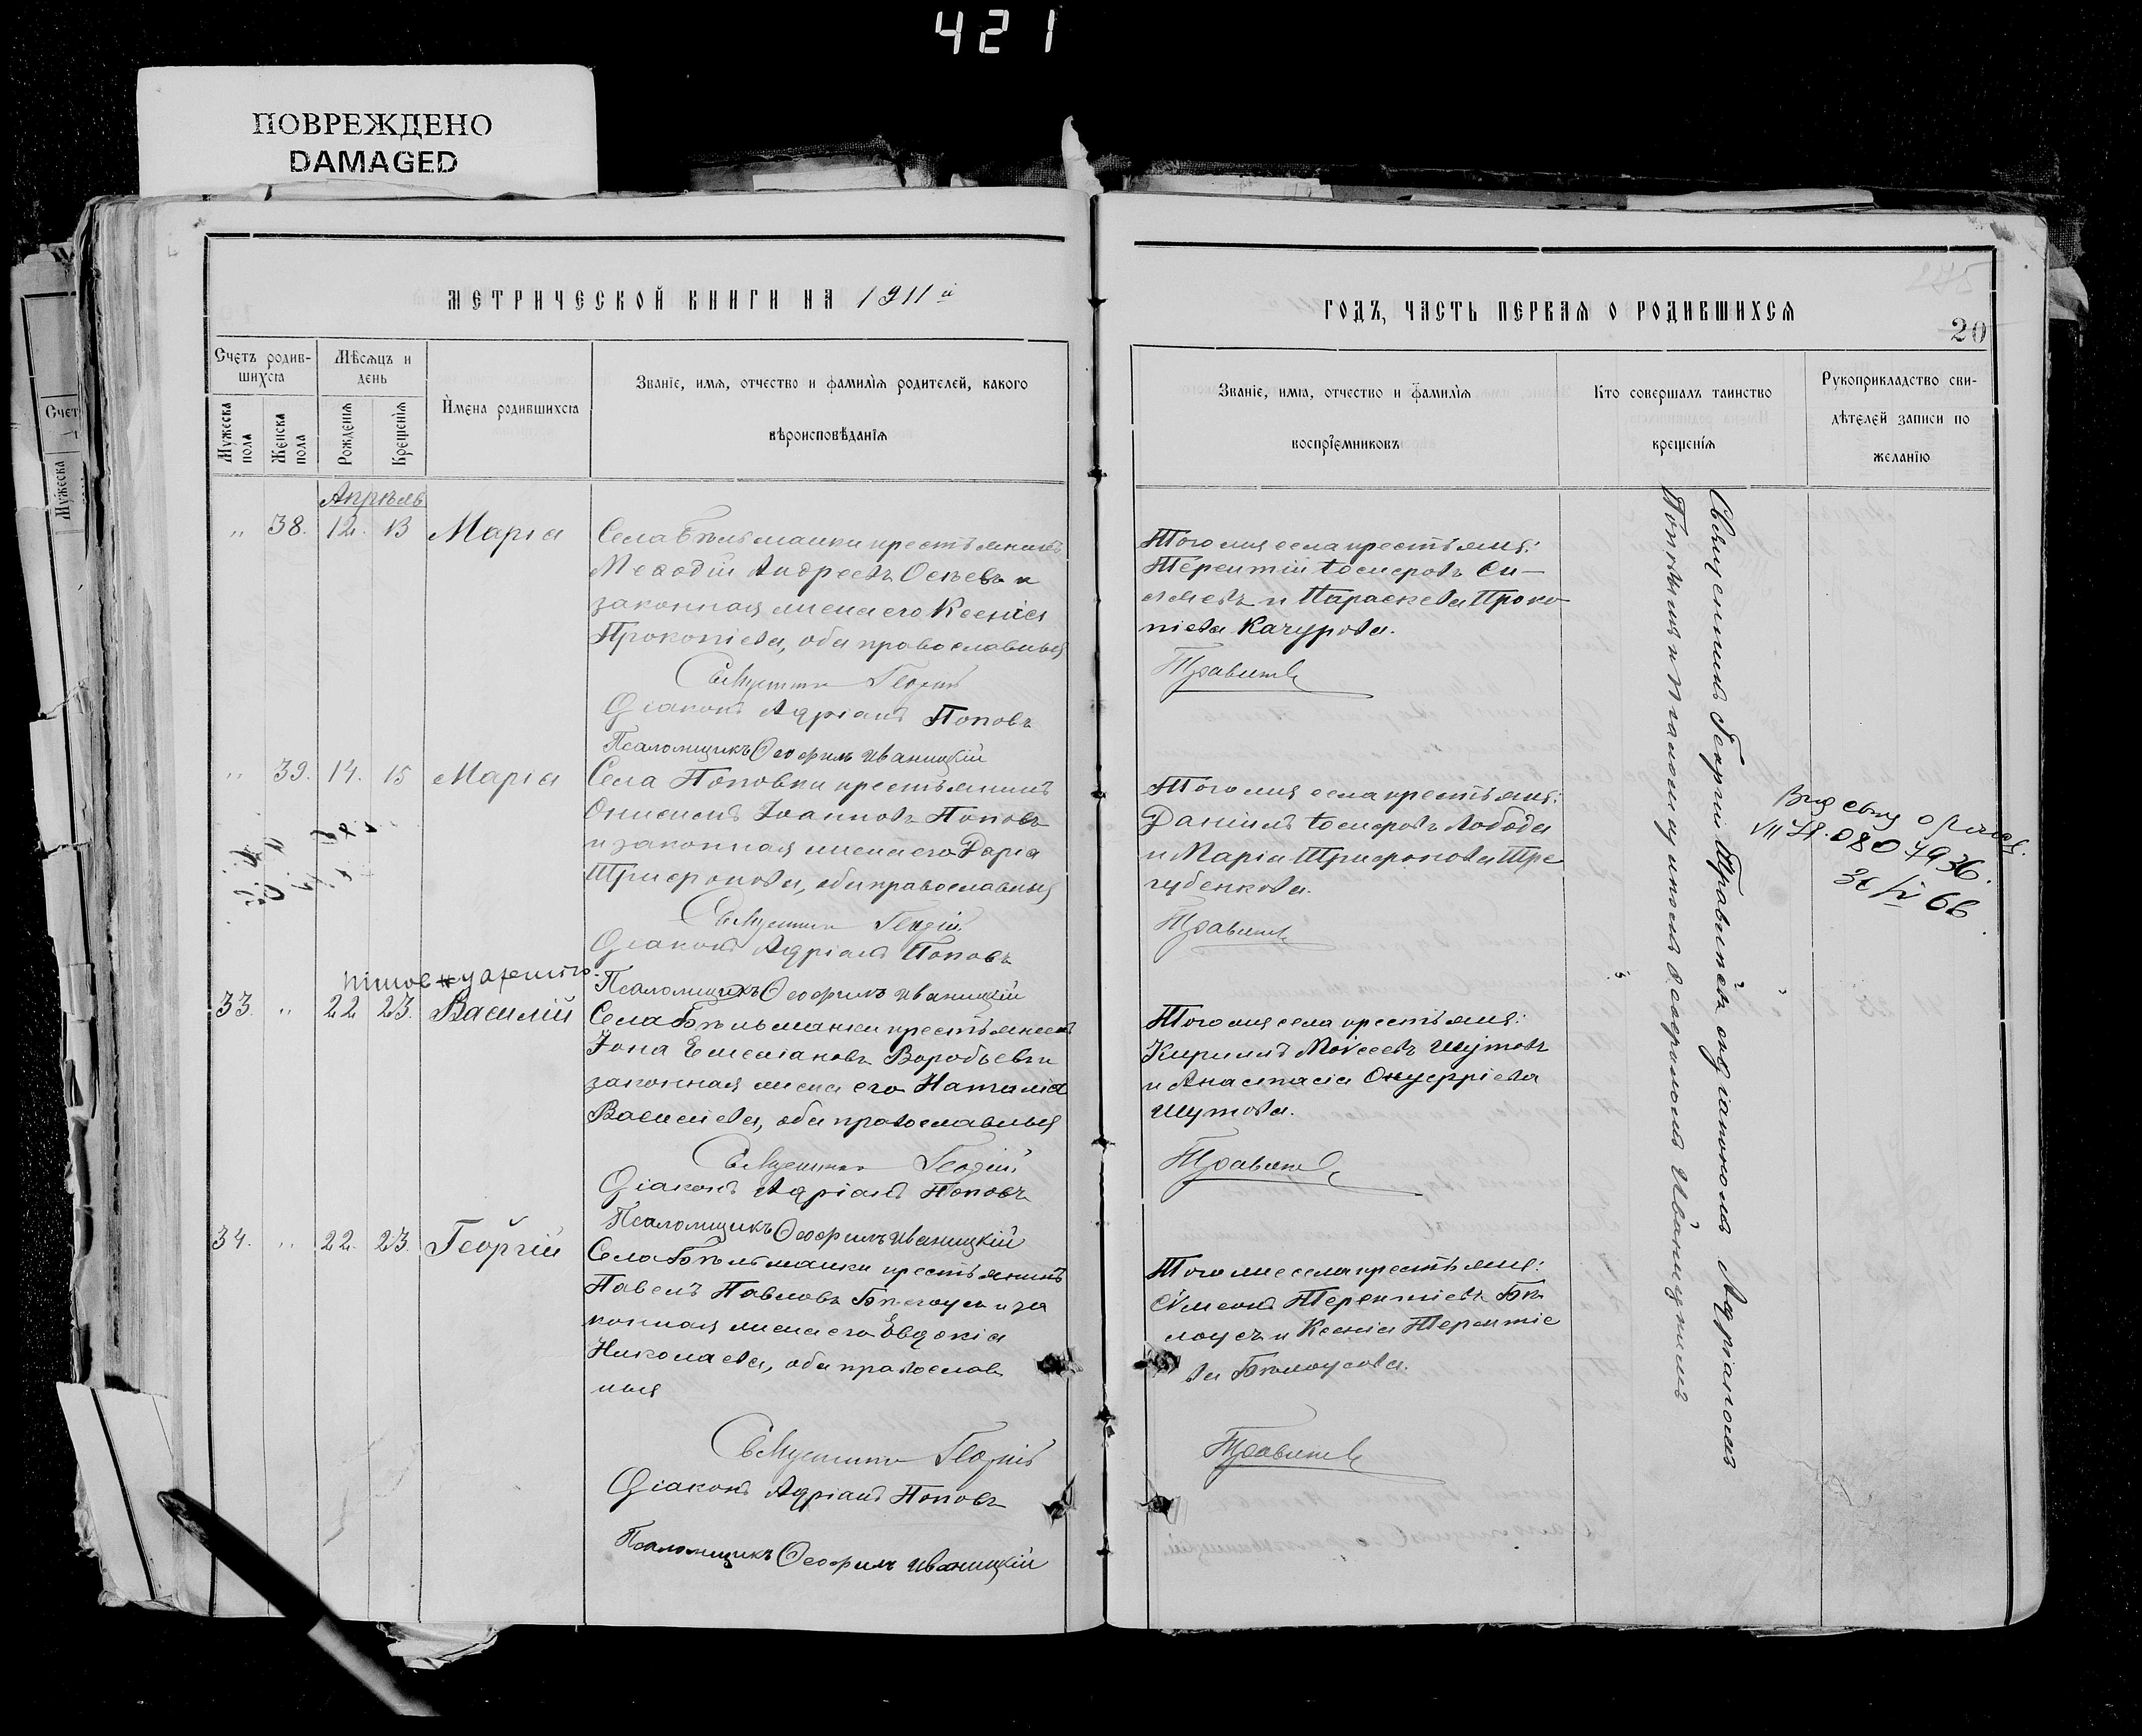 421
ПОВРЕЖДЕНО
DAMAGED
МЕТРИЧЕСКОЙ КНИГИ НА 1911й
Счетъ родив-
шихся
Мѣсяцъ и
день
Имена родившихся
Званіе, имя, отчество и фамилія родителей, какого
вѣроисповѣданія
Мужеска
пола
Женска
пола
Рожденія
Крещенія
Апрѣль
" 38. 12. 13 Марія
Села Бѣльманки крестьянинъ
Меѳодій Андреевъ Осѣевъ и
законная жена его Ксенія
Прокопіева, оба православныя
Священникъ Георгій
Діаконъ Адріанъ Поповъ
Псаломщикъ Ѳеофилъ Иваницкій
" 39. 14. 15 Марія
Села Поповки крестьянинъ
Онисимъ Іоанновъ Поповъ
и законная жена его Дарія
Трифонова, оба православныя
Священникъ Георгій
Діаконъ Адріанъ Поповъ
Псаломщикъ Ѳеофилъ Иваницкій
33. " 22 23. Василій
Села Бѣльманки крестьянинъ
Іона Емеліановъ Воробьевъ и
законная жена его Наталія
Василіева, оба православныя
Священникъ Георгій
Діаконъ Адріанъ Поповъ
Псаломщикъ Ѳеофилъ Иваницкій
34. " 22. 23. Георгій
Села Бѣльманки крестьянинъ
Павелъ Павловъ Бѣлоусъ и за
конная жена его Евдокія
Николаева, оба православ
ныя
Священникъ Георгій
Діаконъ Адріанъ Поповъ
Псаломщикъ Ѳеофилъ Иваницкій
ГОДЪ, ЧАСТЬ ПЕРВАЯ О РОДИВШИХСЯ
275
20
Званіе, имя, отчество и фамилія
воспріемниковъ
Кто совершалъ таинство
крещенія
Рукоприкладство сви-
дѣтелей записи по
желанію
Того же села крестьяне:
Терентій Іосифовъ Си-
и Параскева Проко
піева Качурова.
Травинъ
Того же села крестьяне:
Даніилъ Іосифовъ Лобода
и Марія Трифонова Тре
губенкова.
Травинъ
Того же села крестьяне:
Кириллъ Моісеевъ Шутовъ
и Анастасія Онуфріева
Шутова.
Травинъ
Того же села крестьяне:
Сѵмеонъ Терентіевъ Бѣ
лоусъ и Ксенія Терентіе
ва Бѣлоусова.
Травинъ
Священникъ Георгій Травинъ съ діакономъ Адріаномъ
Поповымъ и псаломщикомъ Ѳеофиломъ Иваницкимъ
080 7936.
66